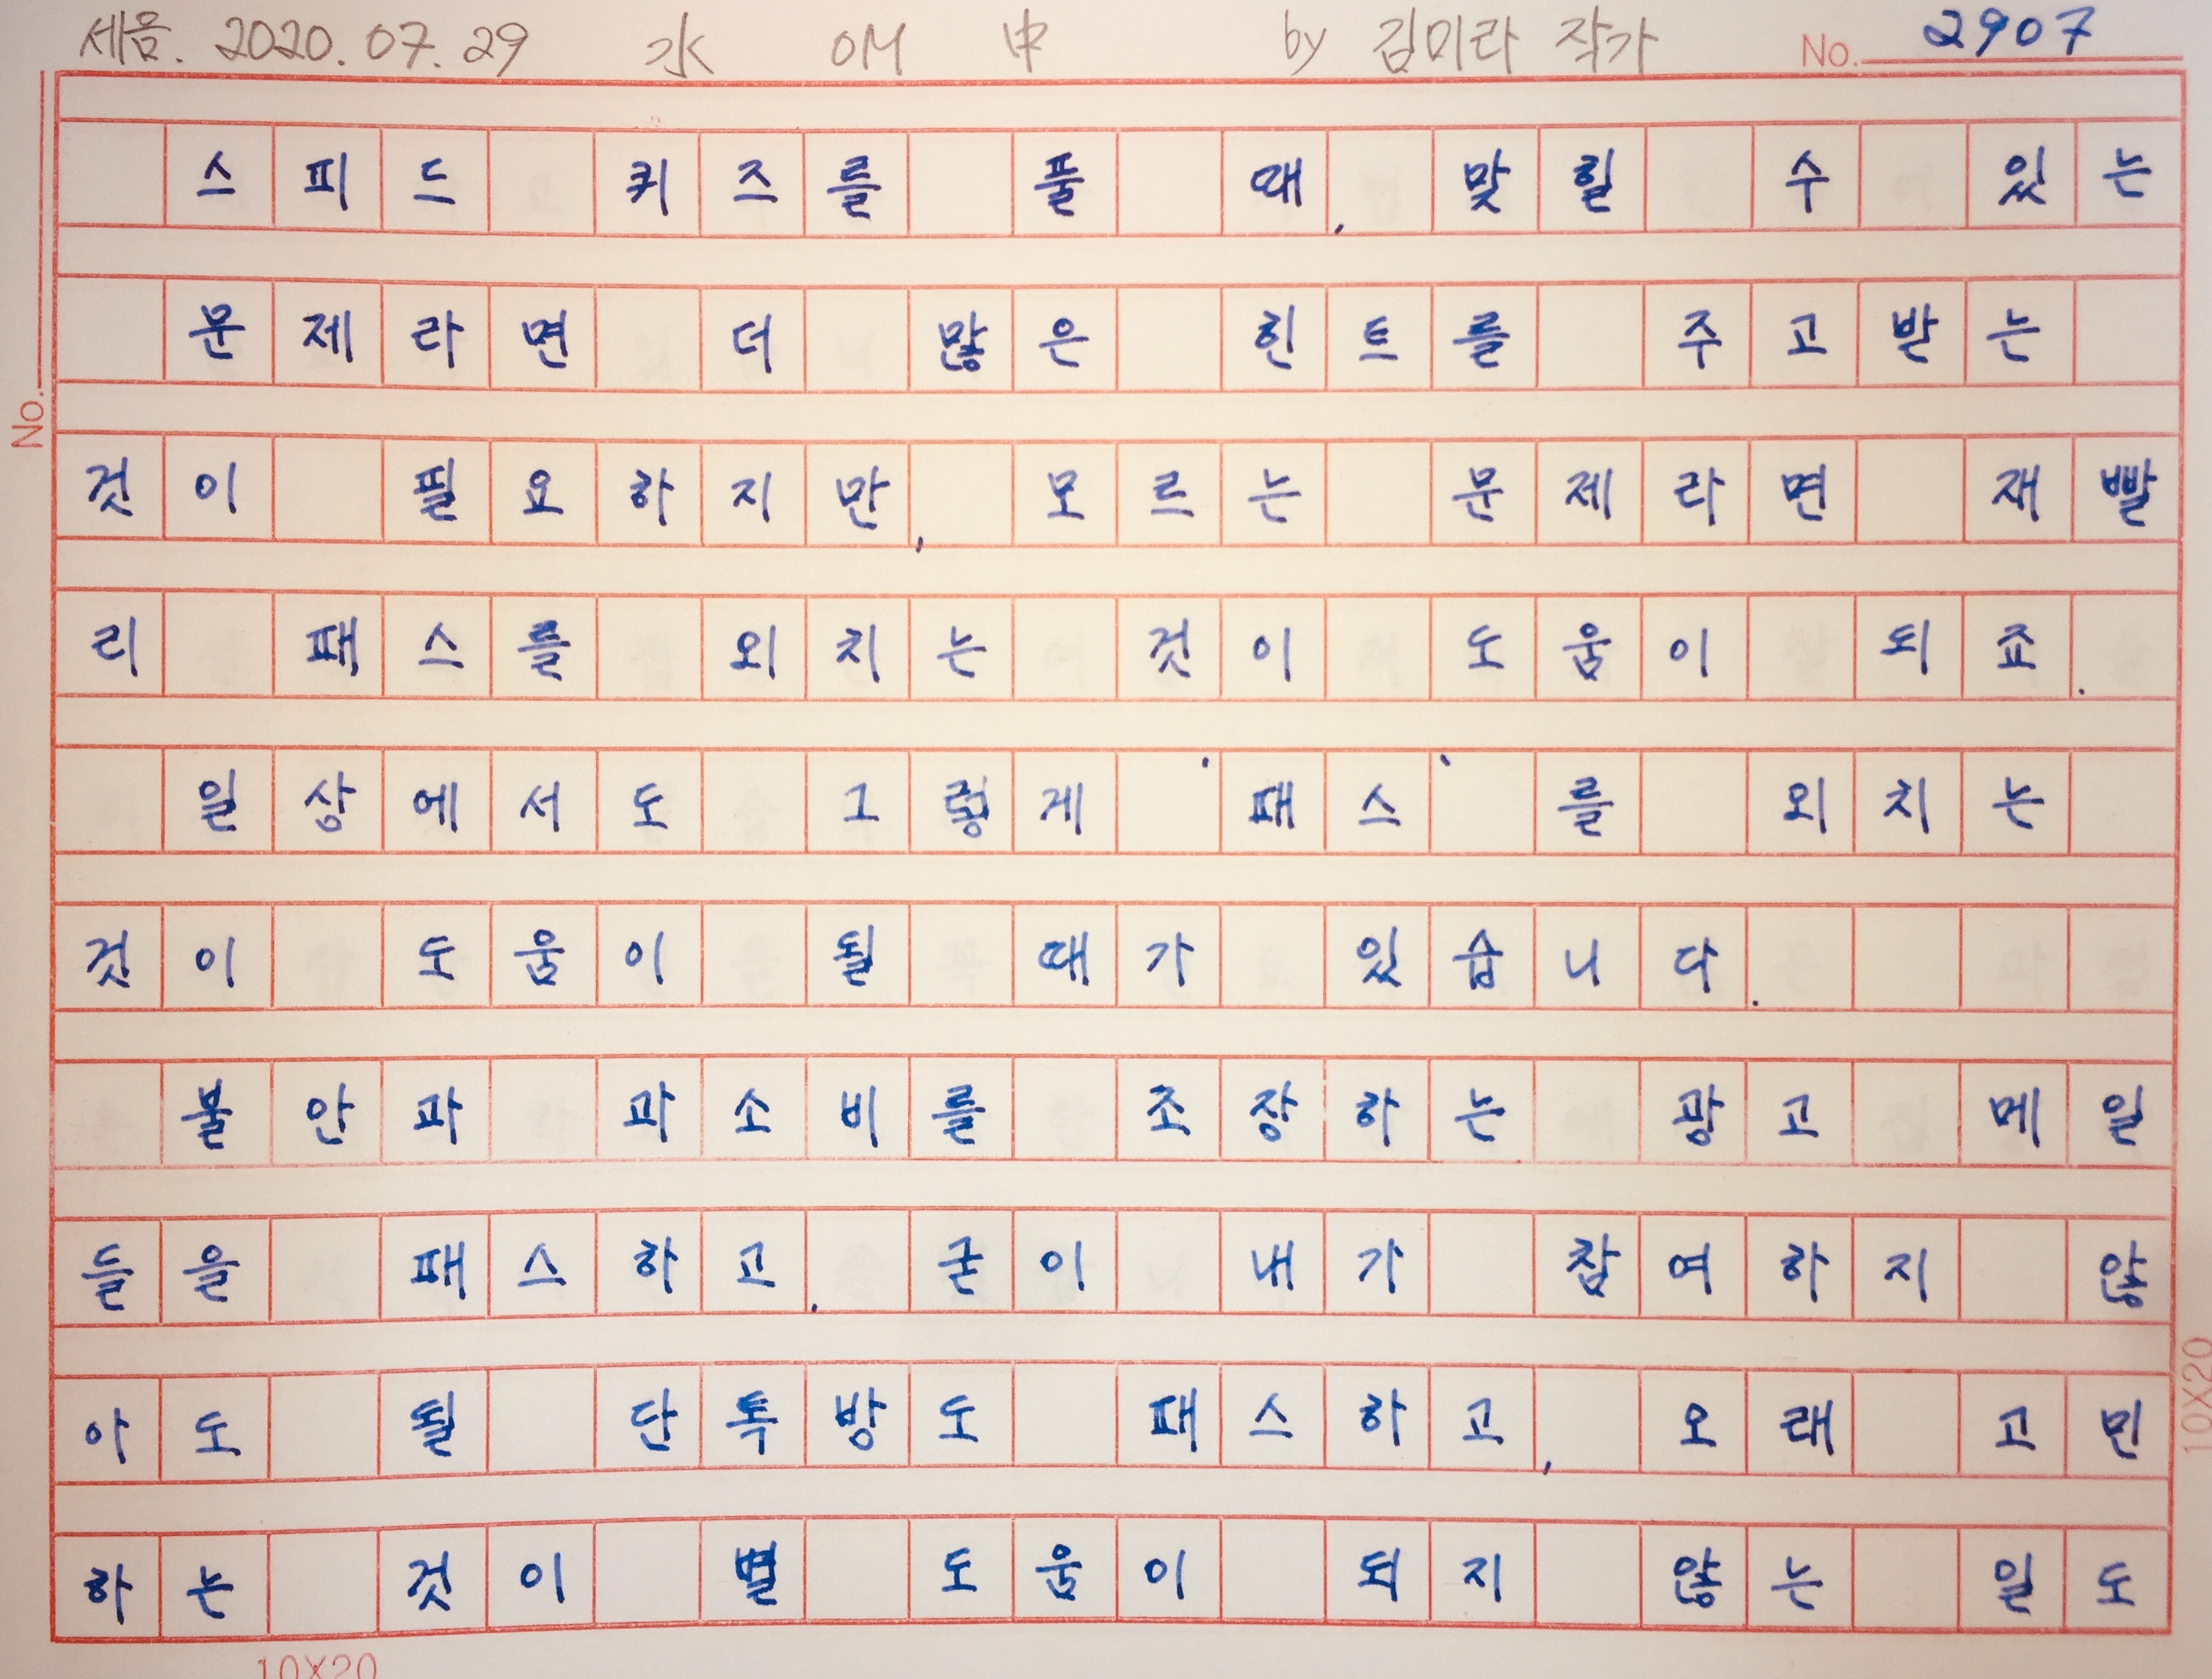 세음. 2020.07.29 水 OM 中 by 김미라 작가 No. 2907
스피드 퀴즈를 풀 때, 맞힐 수 있는
문제라면 더 많은 힌트를 주고받는
것이 필요하지만, 모르는 문제라면 재빨
리 패스를 외치는 것이 도움이 되죠.
일상에서도 그렇게 '패스'를 외치는
것이 도움이 될 때가 있습니다.
불안과 과소비를 조장하는 광고 메일
들을 패스하고, 굳이 내가 참여하지 않
아도 될 단톡방도 패스하고, 오래 고민
하는 것이 별 도움이 되지 않는 일도
No.
10X20
10X20